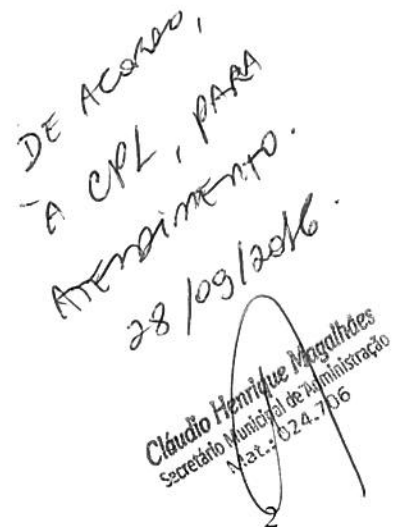 DE ACORDO,
À CPL, PARA
ATENDIMENTO.
28/09/2016.
Cláudio Henrique Magalhães
Secretário Municipal de Administração
Mat.: 024.706